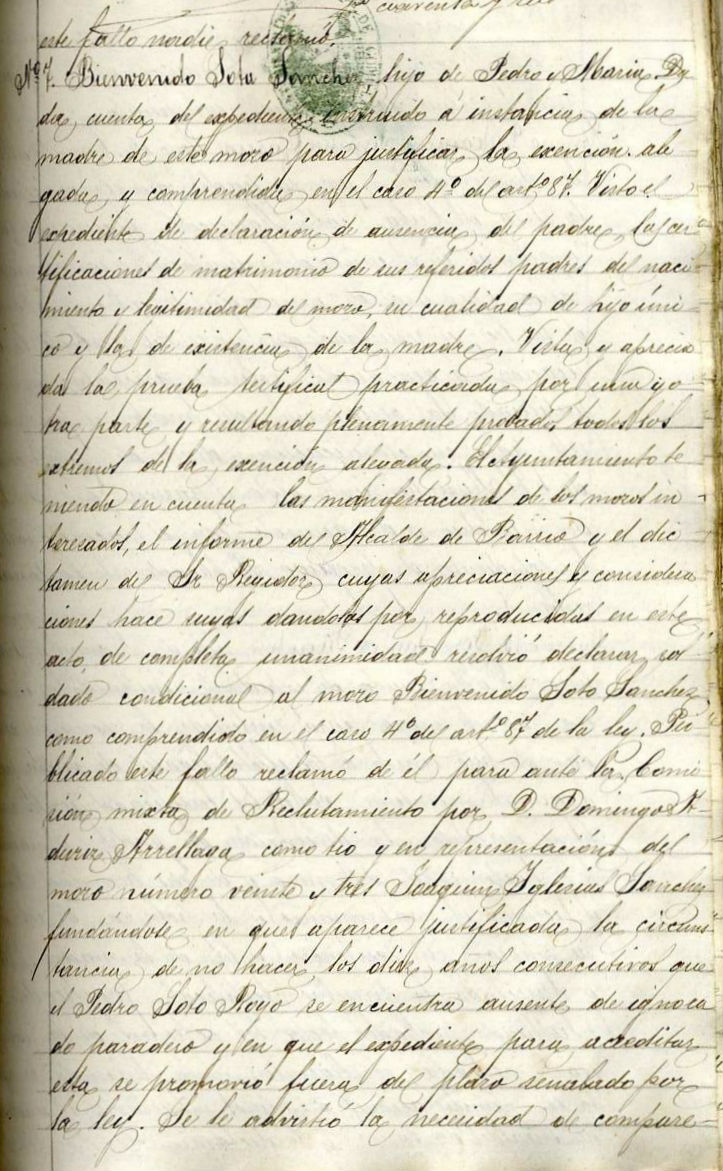 cuarenta y seis
este fallo nadie reclamó.
Nº 7. Bienvenido Soto Sanchez, hijo de Pedro y Maria. Da
da cuenta del expediente instruido á instancia de la
madre de este mozo para justificar la exención ale
gada y comprendida en el caso 4º del artº 87. Visto el
expediente de declaración de ausencia del padre, las cer
tificaciones de matrimonio de sus referidos padres del naci
miento y legitimidad del mozo, en cualidad de hijo úni
co y la de existencia de la madre. Vista y aprecia
da la prueba testifical practicada por una y o
tra parte y resultando plenamente probados todos los
extremos de la exención alegada. El Ayuntamiento te
niendo en cuenta las manifestaciones de los mozos in
teresados, el informe del Alcalde de Barrio y el dic
tamen del Sr Regidor cuyas apreciaciones y considera
ciones hace suyas dandolas por reproducidas en este
acto, de completa unanimidad resolvió declarar sol
dado condicional al mozo Bienvenido Soto Sanchez
como comprendido en el caso 4º del artº 87 de la ley. Pu
blicado este fallo reclamó de él para ante la Comi
sión mixta de Reclutamiento por D. Domingo A
duriz Arrellaga como tio y en representación del
mozo número veinte y tres Joaquin Iglesias Sanchez
fundándose en que aparece justificada la circuns
tancia de no hacer los diez años consecutivos que
el Pedro Soto Royo se encuentra ausente de ignora
do paradero y en que el expediente para acreditar
esta se promovió fuera del plazo señalado por
la ley. Se le advirtió la necesidad de compare-